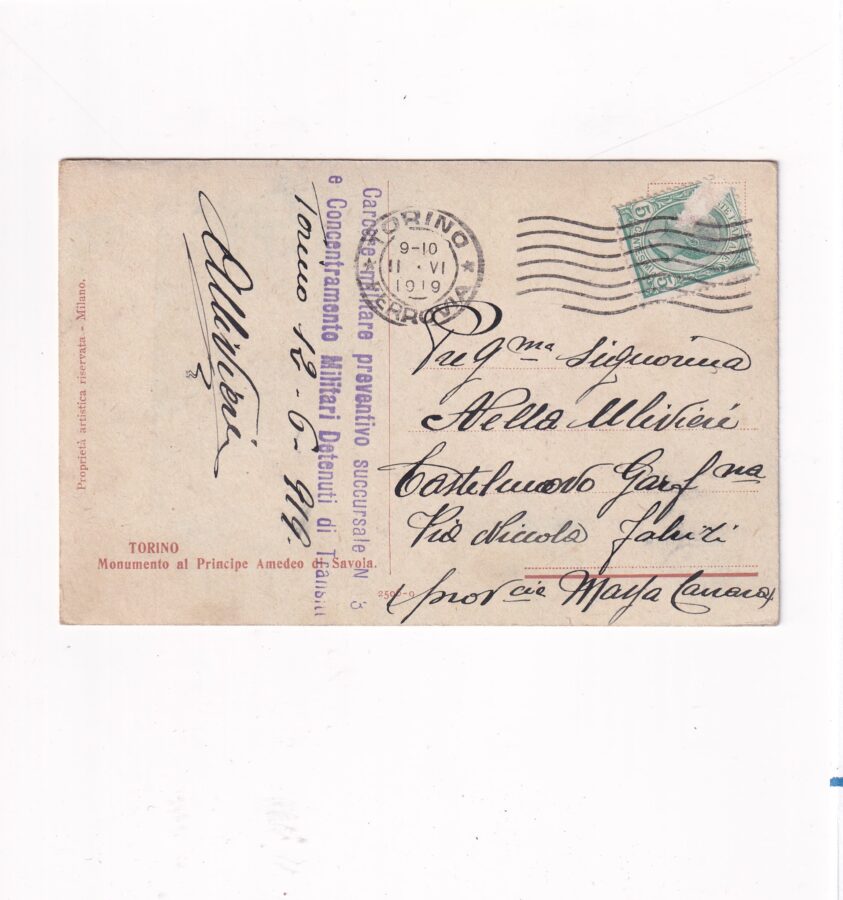 Proprietà artistica riservata - Milano.
TORINO
Monumento al Principe Amedeo di Savoia.
Ulivieri
Torino 12-6-919.
Carcere militare preventivo succursale N 3
e Concentramento Militari Detenuti di Transiti
TORINO
9-10
11 · VI
1919
FERROVIA
5 5
Preg ma Signorina
Nella Ulivieri
Castelnuovo Garf na
Via Niccola Fabrizi
(prov cie Massa Carrara)
2500-9